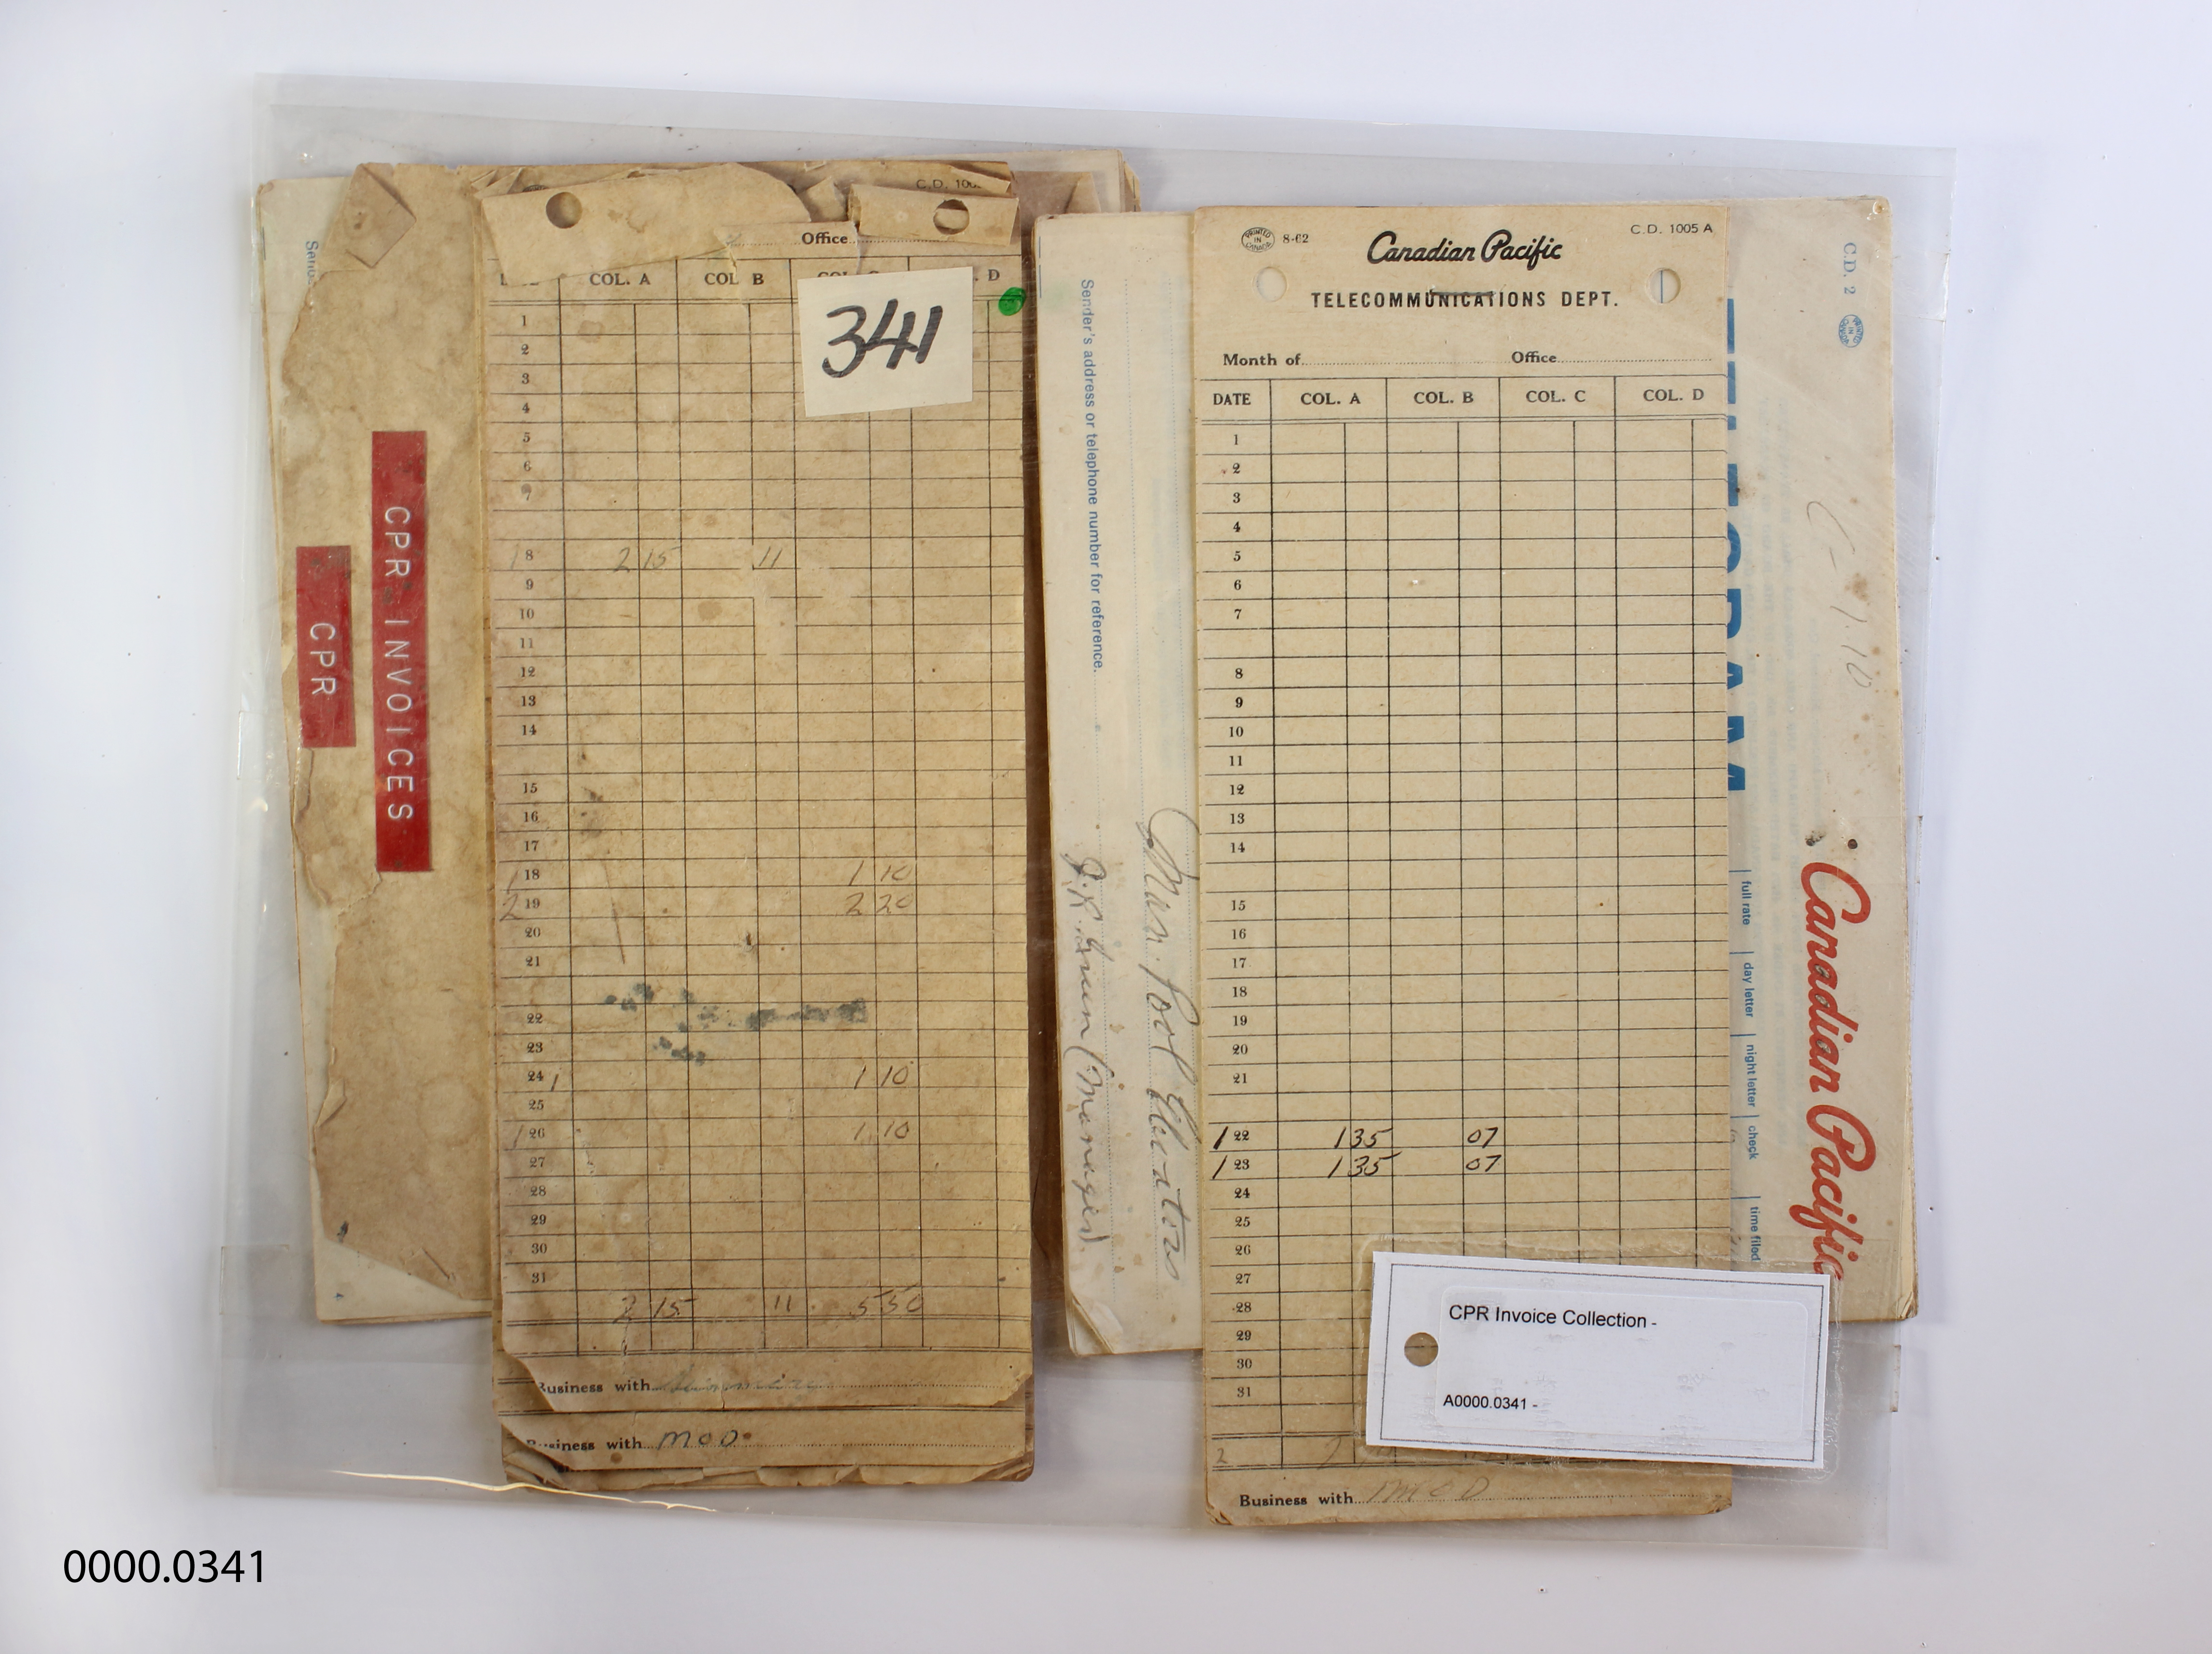 Sende
CPR INVOICES
CPR
C.D. 100
Office
COL. A COL. B D
341
1
2
3
4
5
6
7
1 8 2 15 11
9
10
11
12
13
14
15
16
17
1 18 1 10
2 19 2 20
20
21
22
23
24 1 1 10
25
1 26 1 10
27
28
29
30
31
2 15 11 5 50
Business with
Business with MOD
Sender's address or telephone number for reference.
Man. Pool Elevators
(Manager)
PRINTED IN CANADA 8-62 C.D. 1005 A
Canadian Pacific
TELECOMMUNICATIONS DEPT.
Month of Office
DATE COL. A COL. B COL. C COL. D
1
2
3
4
5
6
7
8
9
10
11
12
13
14
15
16
17
18
19
20
21
1 22 1 35 07
1 23 1 35 07
24
25
26
27
28
29
30
31
2 2
Business with MOD
C.D. 2 PRINTED IN CANADA
TELEGRAM
full rate | day letter | night letter | check | time filed
Canadian Pacific
CPR Invoice Collection -
A0000.0341 -
0000.0341